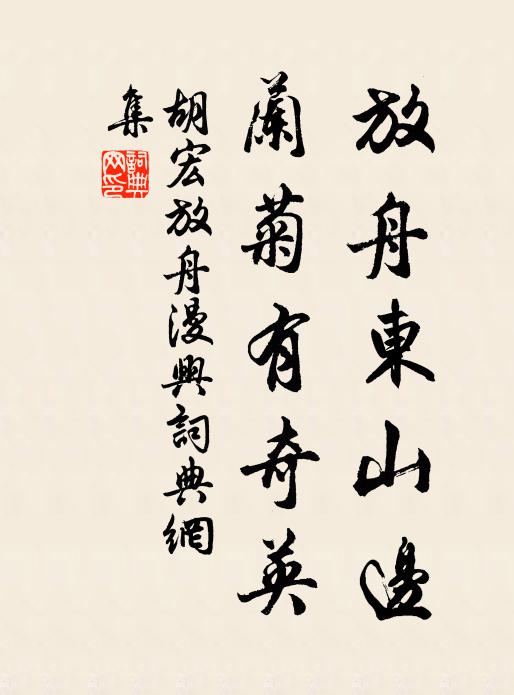 放舟東山邊
蘭菊有奇英
胡宏放舟漫興詞典網
集
詞典網印